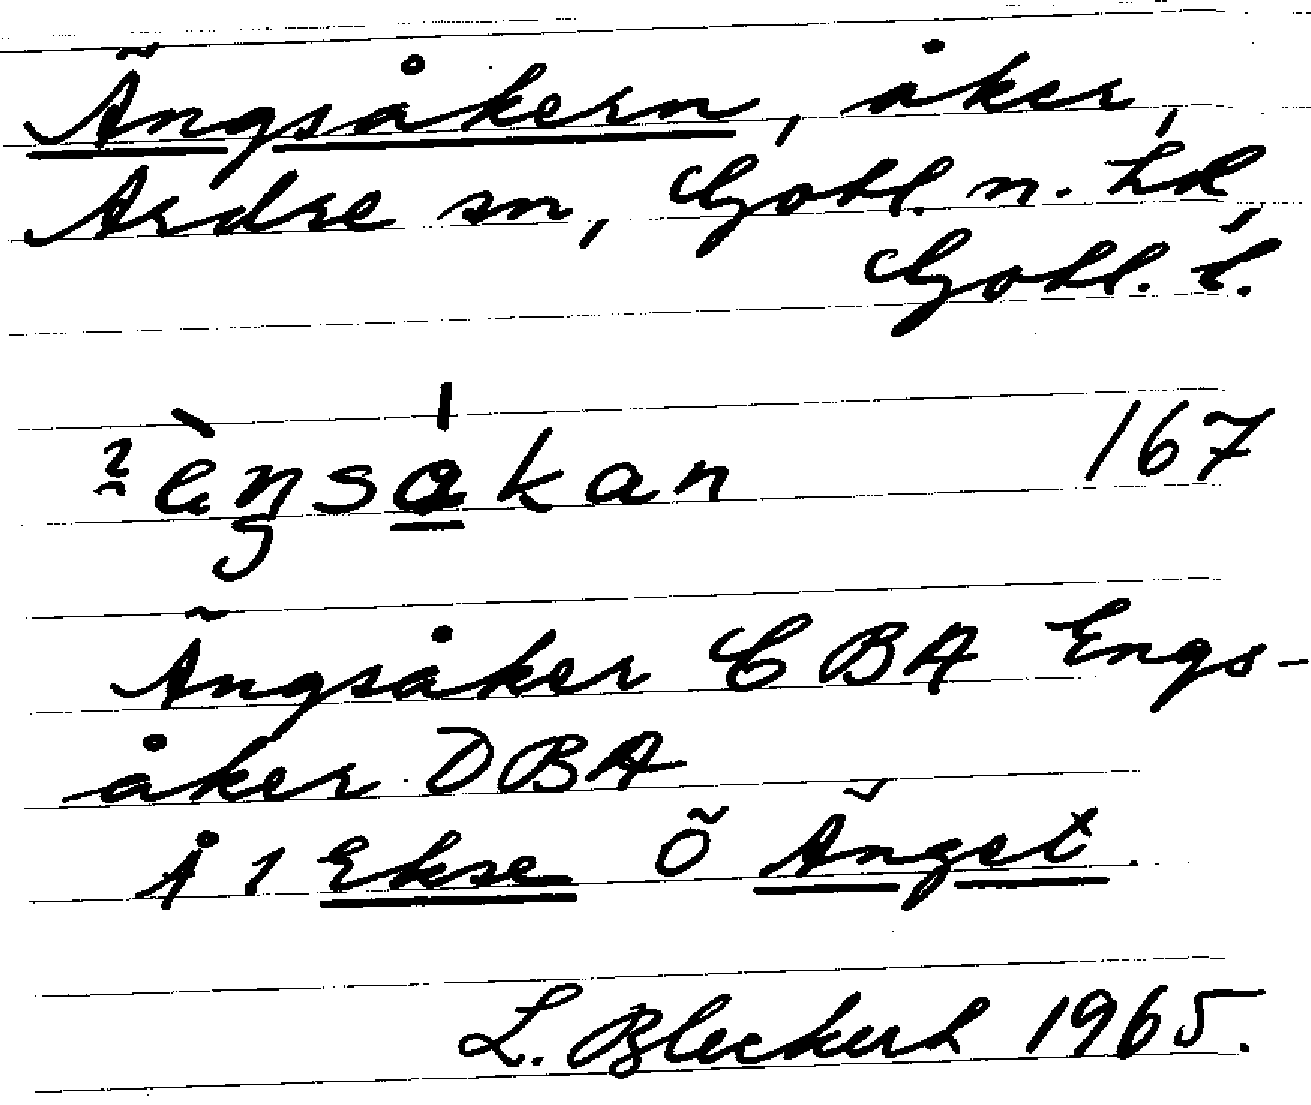 Ängsåkern, åker,
Ardre sn, Gotl. n. hd,
Gotl. l.
ängsåkan 167
Ängsåker CBA Engs-
åker DBA
Å 1 Ekse Ö Änget.
L. Bleckert 1965.